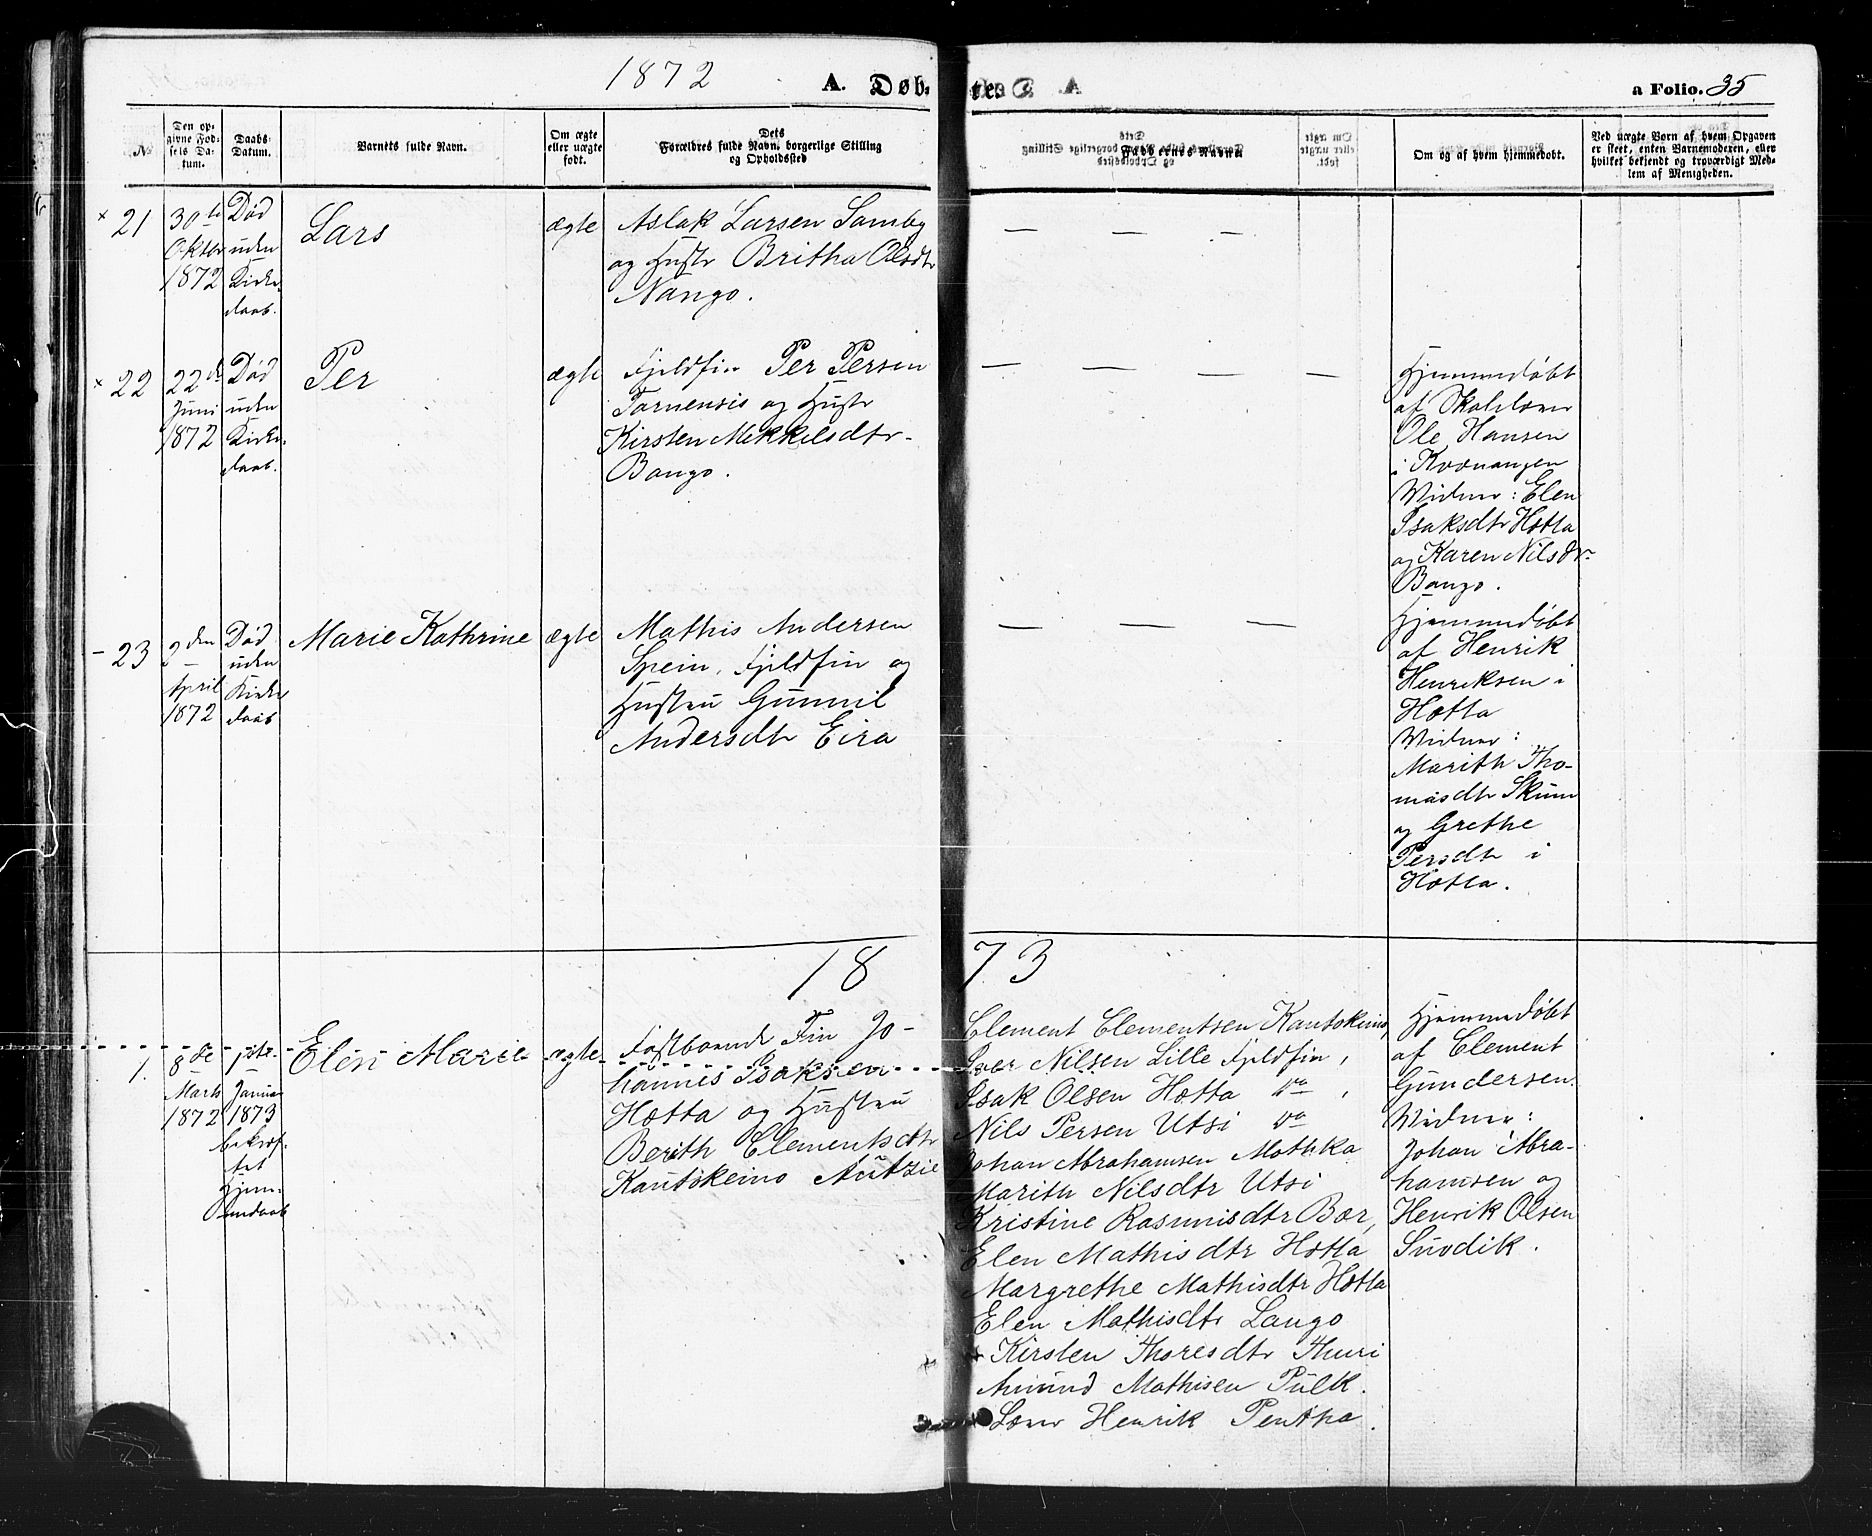 1872
A. Døb-
te.
a Folio. 35
No.
Den op-
givne Fød-
sels Da-
tum.
Daabs-
Datum.
Barnets fulde Navn.
Om ægte
eller uægte
født.
Dets
Forældres fulde Navn, borgerlige Stilling
og Opholdssted
Faddernes Navne
Om og af hvem hjemmedøbt.
Ved uægte Børn af hvem Opgaven
er skeet, enten Barnemoderen, eller
hvilket bekjendt og troværdigt Med-
lem af Menigheden.
× 21
30te
Oktbr
1872
Død
uden
Kirke-
daab.
Lars
ægte
Aslak Larsen Somby
og Hustr Britha Olsdtr
Nango.
— — —
× 22
22de
Juni
1872
Død
uden
Kirke-
daab.
Per
ægte
Fjeldfin Per Persen
Tornensis og Hustr
Kirsten Mikkelsdtr
Bongo.
— — — —
Hjemmedøbt
af Skolelærer
Ole Hansen
i Kvænangen
Vidner: Elen
Isaksdtr Hætta
og Karen Nilsdr
Bongo.
- 23
2den
April
1872
Død
uden
Kirke
daab
Marie Kathrine
ægte
Mathis Andersen
Spein, Fjeldfin og
Hustru Gunnil
Andersdtr Eira
— — —
Hjemmedøbt
af Henrik
Henriksen i
Hætta
Vidner:
Marith Tho-
masdtr Skum
og Grethe
Persdtr i
Hætta.
1873
1.
8de
Marts
1872
1ste
Januar
1873
bekræf-
tet
Hjem-
medaab
Elen Marie
ægte
Fastboende Fin Jo-
hannes Isaksen
Hætta og Hustru
Berith Clementsdtr
Kautokeino Autzie
Clement Clementsen Kautokeino,
Iver Nilsen Lille Fjeldfin,
Isak Olsen Hætta do,
Nils Persen Utsi do
Johan Abrahamsen Mothka
Marith Nilsdtr Utsi
Kristine Rasmusdtr Bær,
Elen Mathisdtr Hætta
Margrethe Mathisdtr Hætta
Elen Mathisdtr Lango
Kirsten Thoresdtr Thuri
Amund Mathisen Pulk.
Lærer Henrik Pentha.
Hjemmedøbt
af Clement
Gundersen.
Vidner:
Johan Abra-
hamsen og
Henrik Olsen